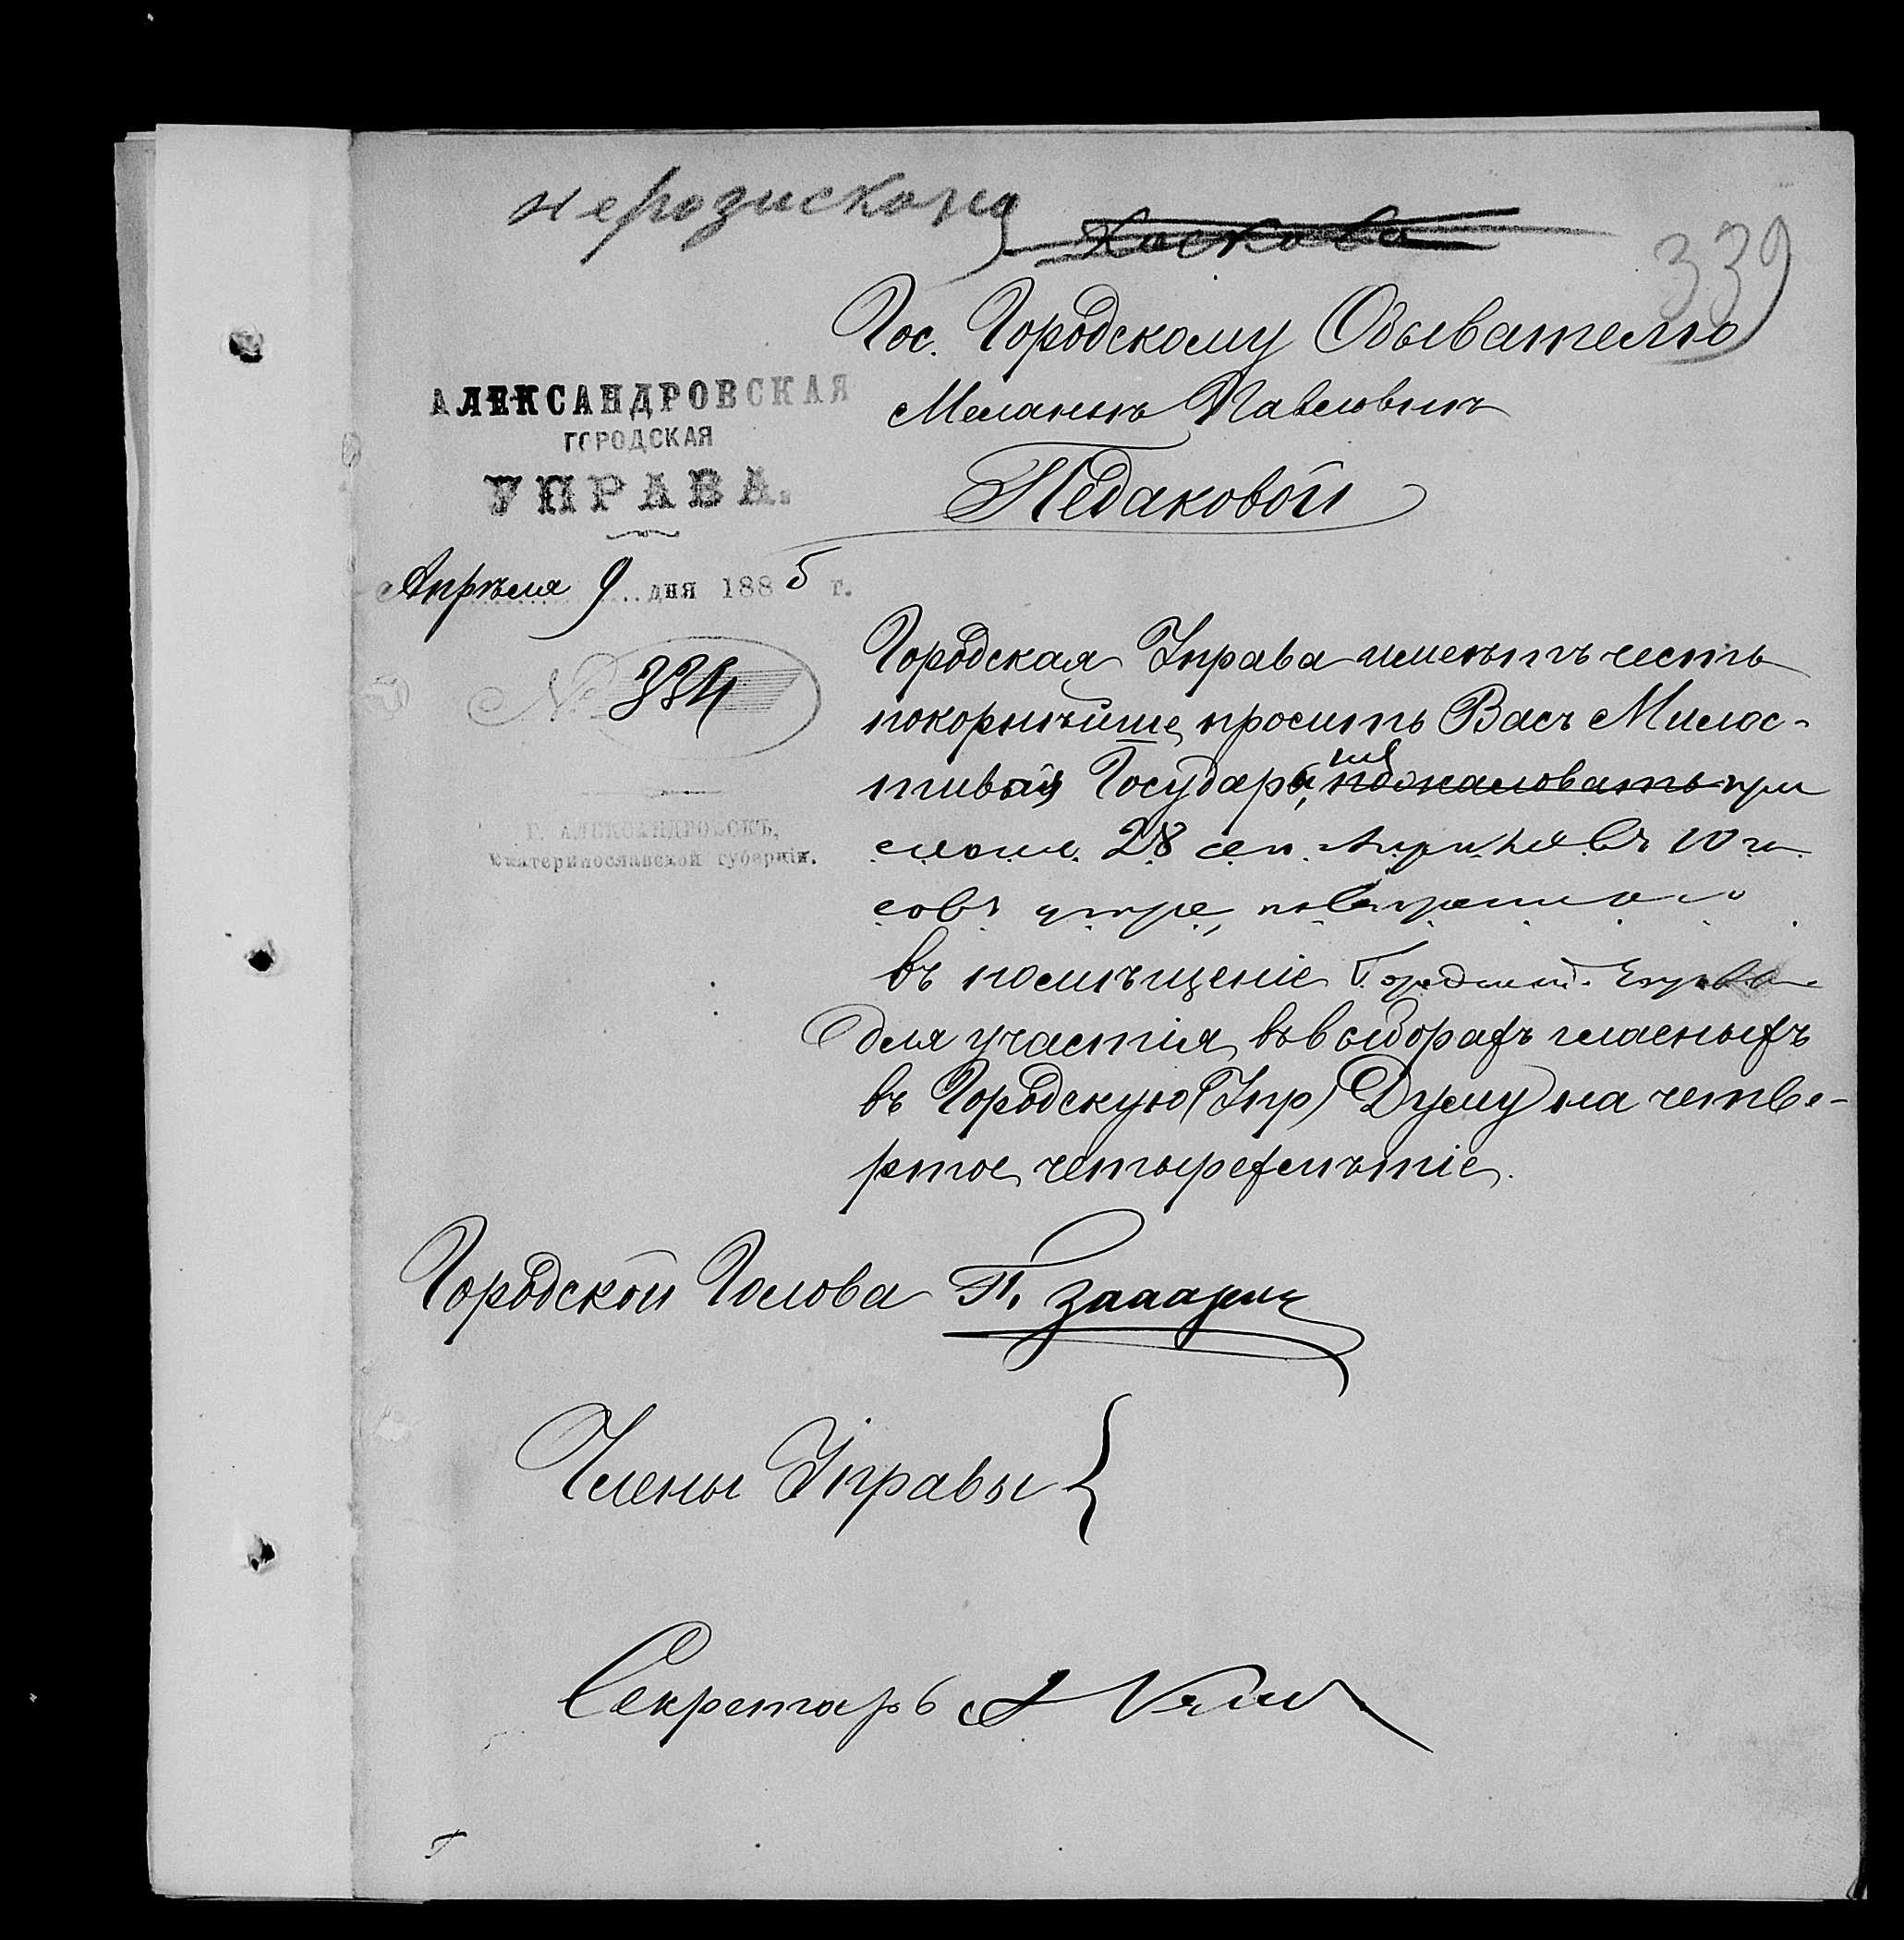 не розискана
339
Гос. Городскому Обывателю
Меланьѣ Павловнѣ
Педаковой
АЛЕКСАНДРОВСКАЯ
ГОРОДСКАЯ
УПРАВА.
Апрѣля 9 дня 1885 г.
№ 334
Г. АЛЕКСАНДРОВСКЪ,
Екатеринославской губерніи.
Городская Управа имѣетъ честь
покорнѣйше просить Васъ Милос-
тивый Государь, пожаловать
28 сего Апрѣля въ 10 ча
совъ утра
въ помѣщеніе Городской Управы
для участія въ выборахъ гласныхъ
въ Городскую (Упр) Думу на четве-
ртое четырехлѣтіе.
Городской Голова П.
Члены Управы {
Секретарь